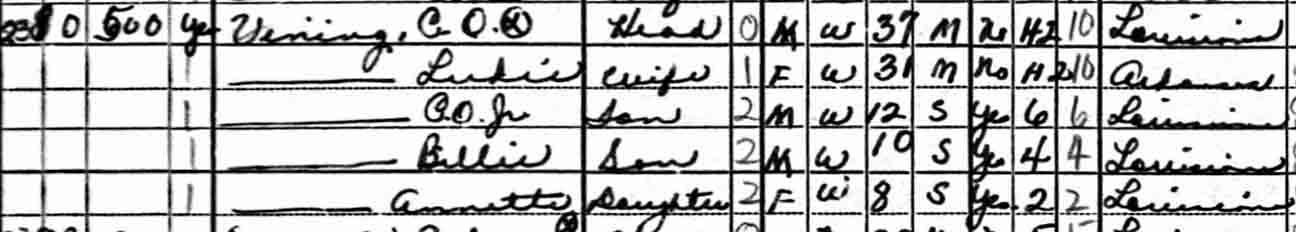 0 500 Yes Vining, C. O. Ⓧ Head 0 M W 37 M No H2 10 Louisiana
Wife 1 F W 31 M No H2 10 Arkansas
C.O. Jr Son 2 M W 12 S Yes 6 6 Louisiana
Billie Son 2 M W 10 S Yes 4 4 Louisiana
Annette Daughter 2 F W 8 S Yes 2 2 Louisiana